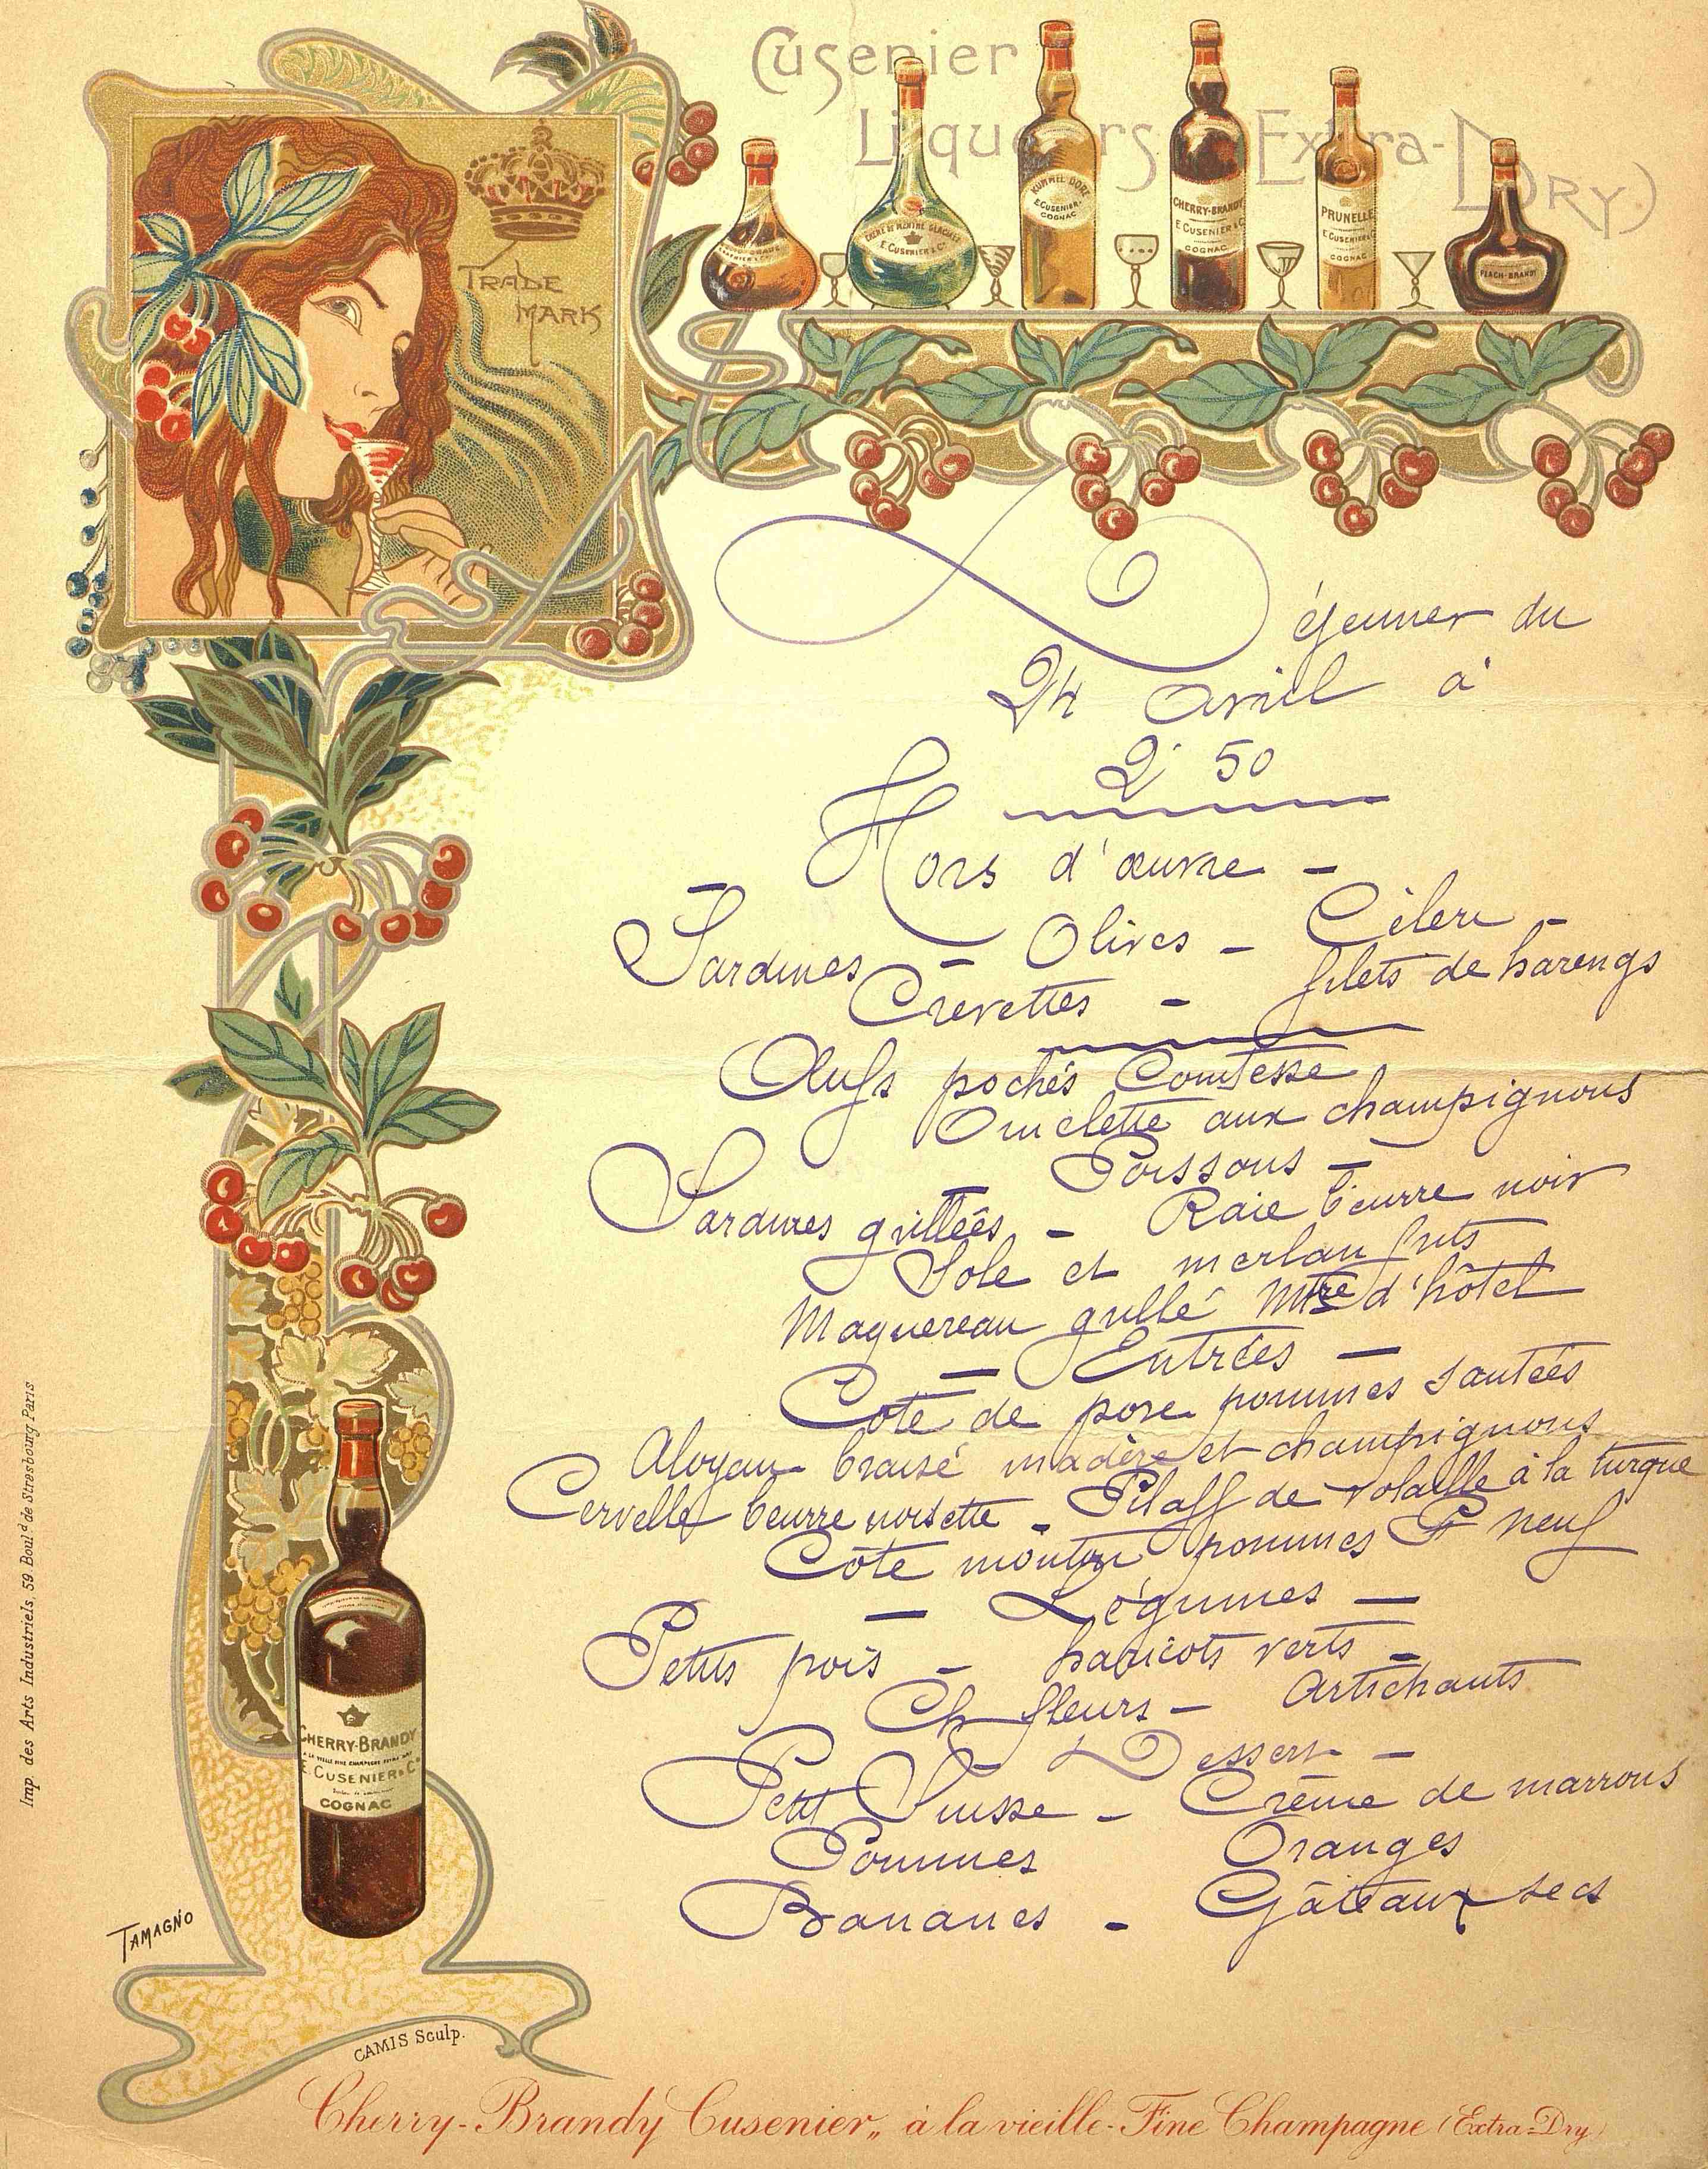 Cusenier
Liqueurs Extra-Dry
TRADE
MARK
CREME DE MENTHE GLACIALE
E. CUSENIER & Cie
KUMMEL DORÉ
E. CUSENIER
COGNAC
CHERRY-BRANDY
E. CUSENIER & Cie
COGNAC
PRUNELLE
E. CUSENIER & Cie
COGNAC
PEACH-BRANDY
Déjeuner du
24 avril à
2f 50
Hors d'œuvre -
Sardines - Olives - Céleri -
Crevettes - filets de harengs
Œufs pochés Comtesse
Omelette aux champignons
- Poissons -
Sardines grillées - Raie beurre noir
Sole et merlan frits
Maquereau grillé Mtre d'hôtel
- Entrées -
Cote de porc pommes sautées
Aloyau braisé madère et champignons
Cervelle beurre noisette - Pilaff de volaille à la turque
Côte mouton pommes Pt neuf
- Légumes -
Petits pois - haricots verts -
Ch fleurs - Artichauts
Dessert -
Petit Suisse - Crème de marrons
Pommes Oranges
Bananes - Gâteaux secs
CHERRY-BRANDY
A LA VIEILLE FINE CHAMPAGNE EXTRA DRY
E. CUSENIER & Cie
COGNAC
TAMAGNO
CAMIS Sculp.
Imp. des Arts Industriels, 59 Bould de Strasbourg Paris
Cherry-Brandy Cusenier„ à la vieille-Fine Champagne (Extra-Dry)